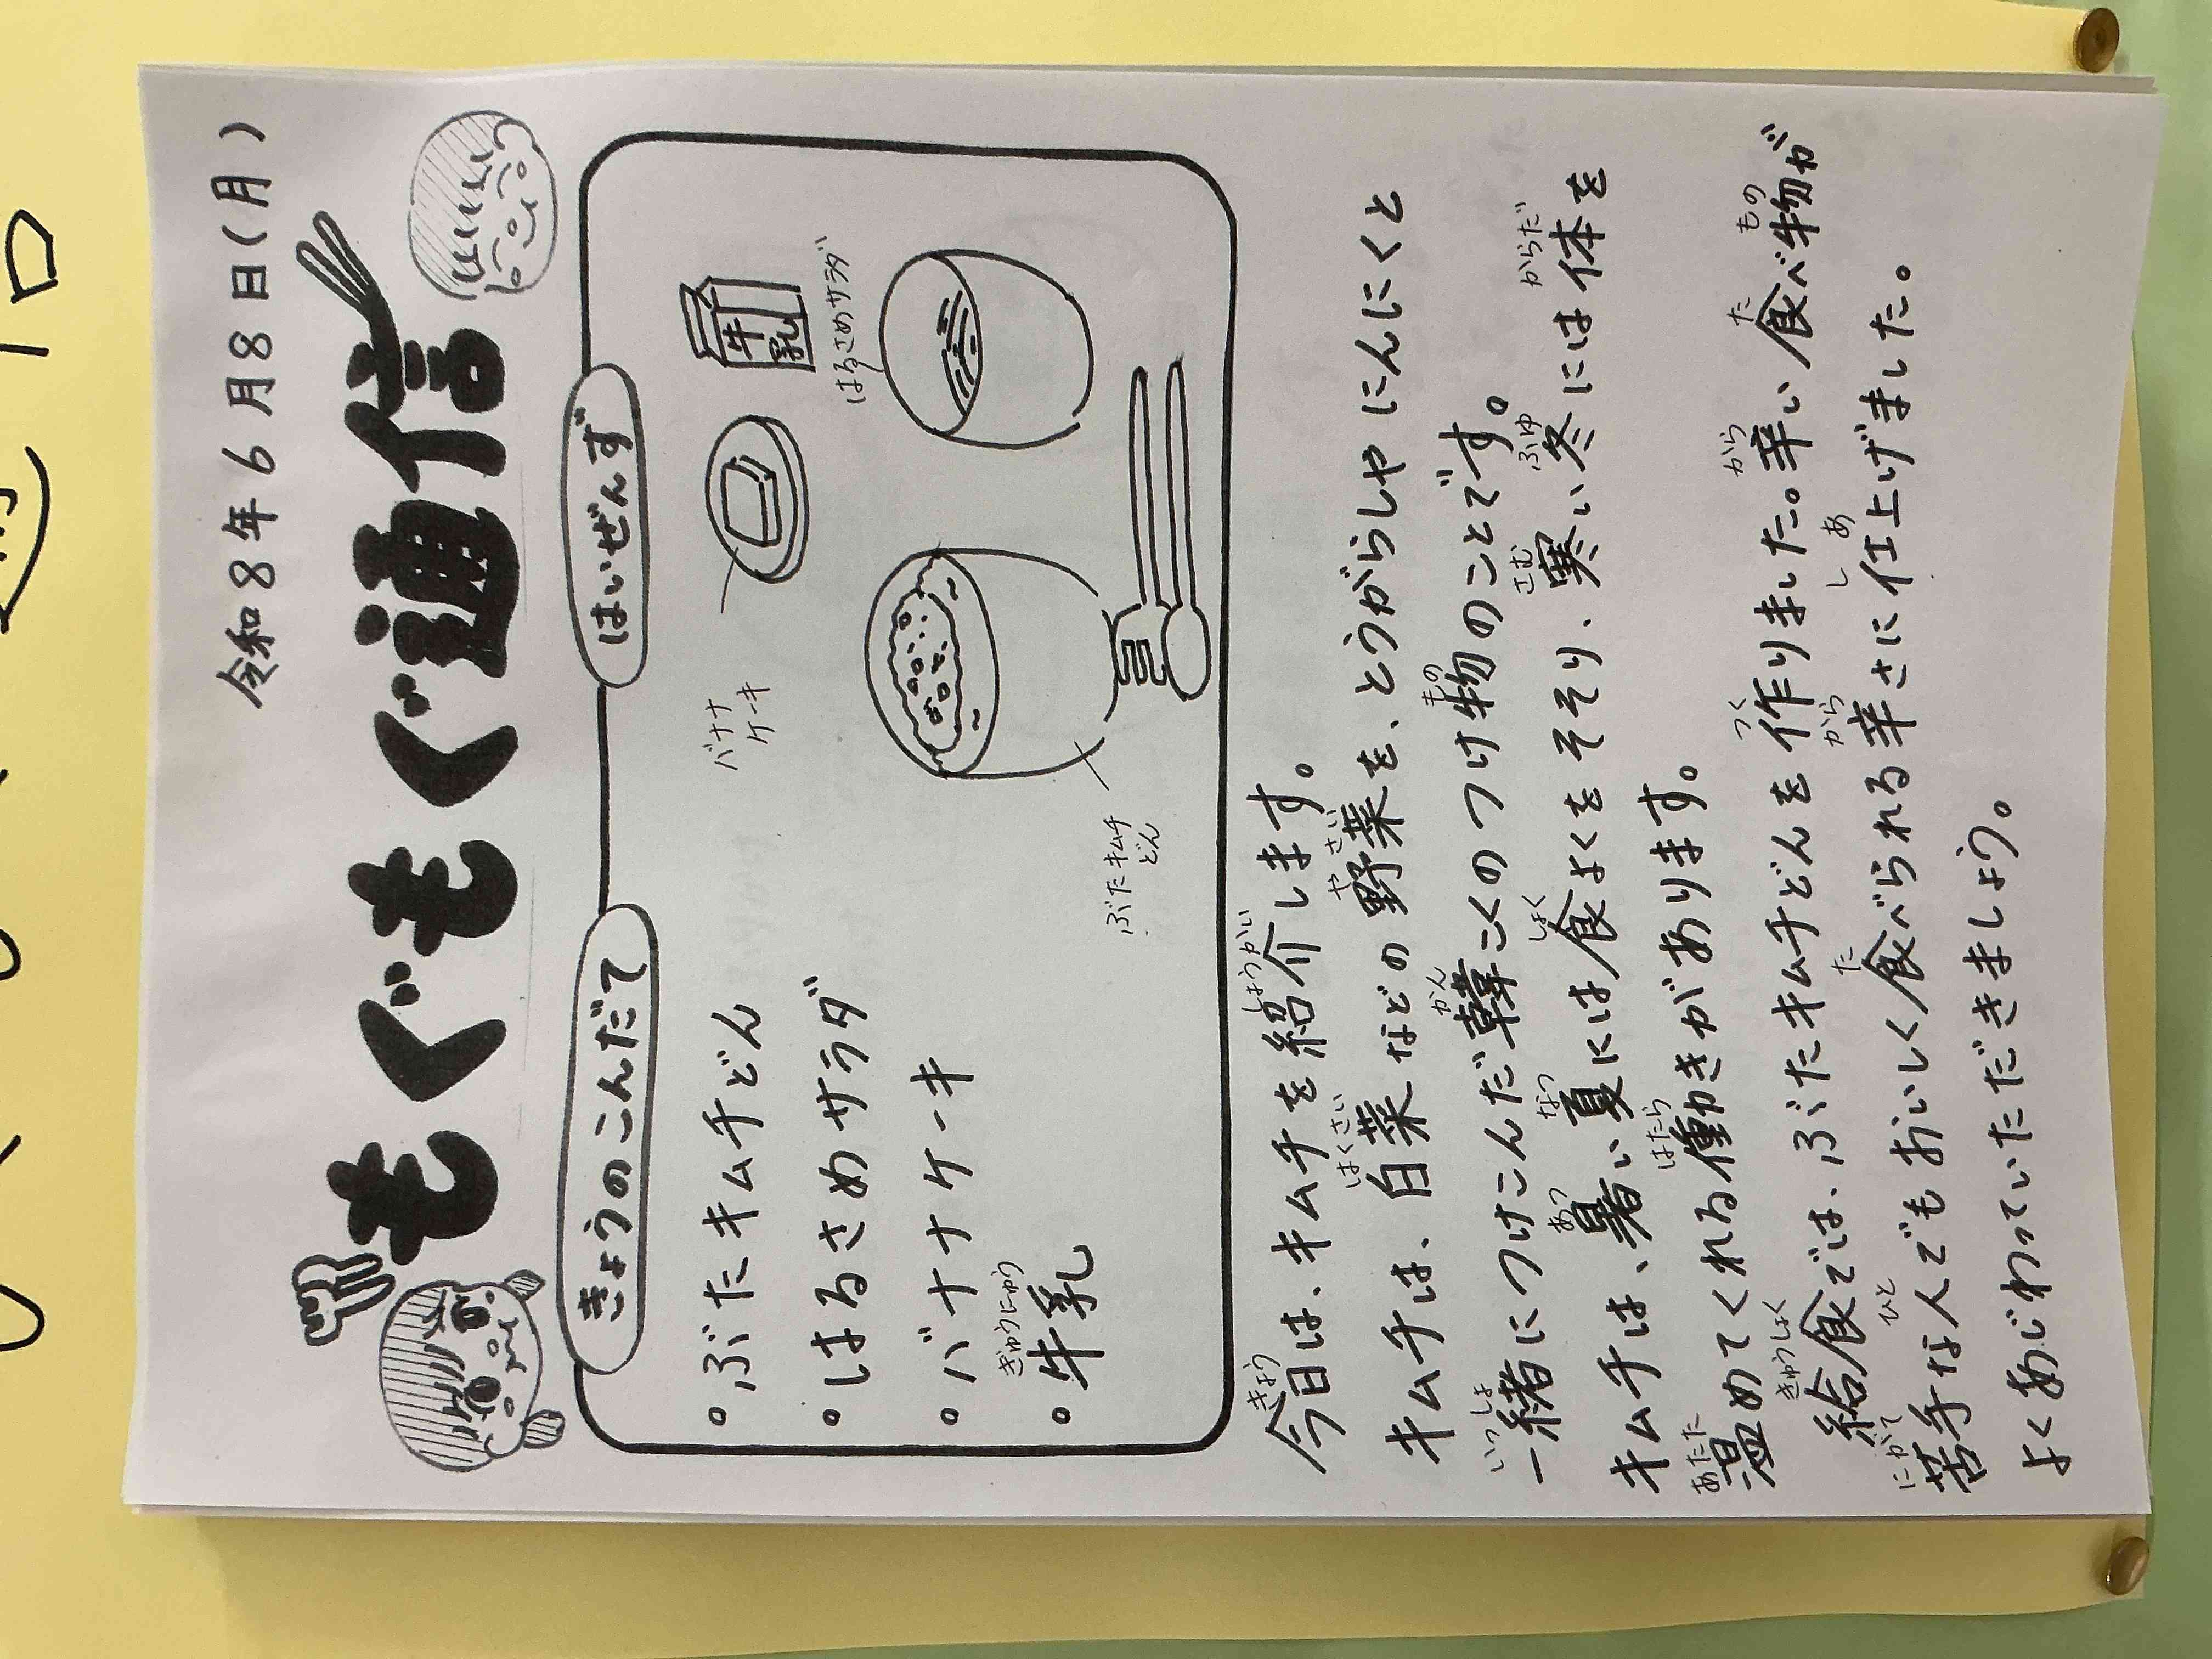 令和8年6月8日(月)
もぐもぐ通信
きょうのこんだて
はいぜんず
・ぶたキムチどん
・はるさめサラダ
・バナナケーキ
・牛乳
ぎゅうにゅう
バナナ
ケーキ
牛乳
はるさめサラダ
ぶたキムチ
どん
今日は、キムチを紹介します。
キムチは、白菜などの野菜を、とうがらしやにんにくと
一緒につけこんだ韓こくのつけ物のことです。
キムチは、暑い夏には食よくをそそり、寒い冬には体を
温めてくれる働きがあります。
給食では、ぶたキムチどんを作りました。辛い食べ物が
苦手な人でもおいしく食べられる辛さに仕上げました。
よくあじわっていただきましょう。